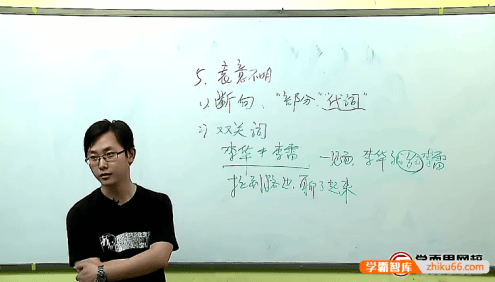 5. 表意不明
1) 断句、"部分" "代词"
2) 双关词
李华 + 李雷 一见面,李华
拉到路边,聊了起来
学而思网校
学霸智库
zhiku66.com